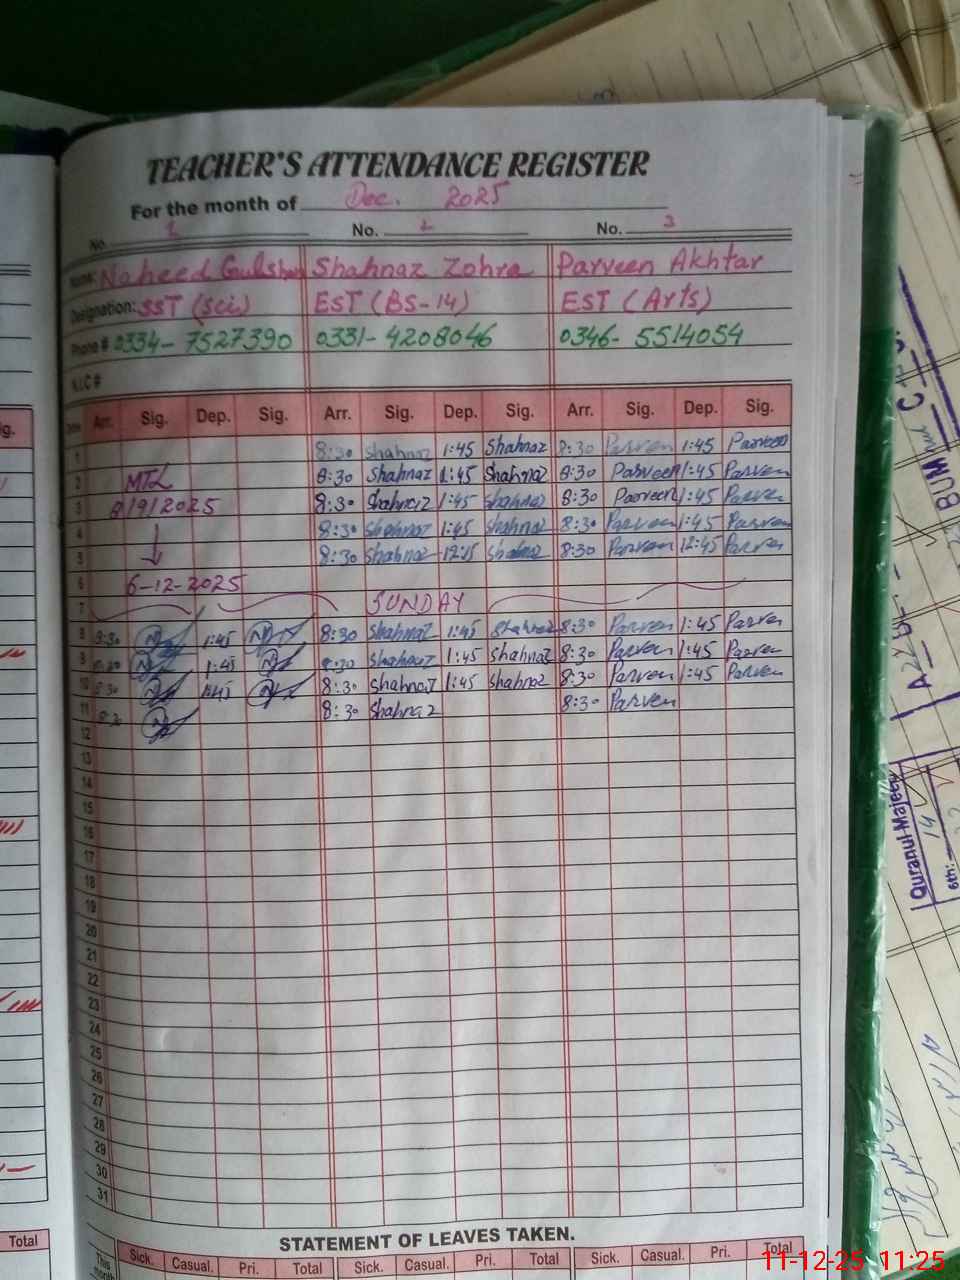 TEACHER'S ATTENDANCE REGISTER
For the month of Dec. 2025
No. 1 No. 2 No. 3
Name: Naheed Gulshan Shahnaz Zohra Parveen Akhtar
Designation: SST (Sci) EST (BS-14) EST (Arts)
Phone # 0334- 7527390 0331- 4208046 0346- 5514054
N.I.C #
Date Arr. Sig. Dep. Sig. Arr. Sig. Dep. Sig. Arr. Sig. Dep. Sig.
1 8:30 Shahnaz 1:45 Shahnaz 8:30 Parveen 1:45 Parveen
2 MTL 8:30 Shahnaz 1:45 Shahnaz 8:30 Parveen 1:45 Parveen
3 9/2025 8:30 Shahnaz 1:45 Shahnaz 8:30 Parveen 1:45 Parven
4 8:30 Shahnaz 1:45 Shahnaz 8:30 Parveen 1:45 Parven
5 8:30 Shahnaz Shahnaz 8:30 Parveen 12:45 Parven
6 6-12-2025
7 SUNDAY
8 8:30 1:45 8:30 Shahnaz 1:45 Shahnaz 8:30 Parven 1:45 Parven
9 8:30 1:45 8:30 Shahnaz 1:45 Shahnaz 8:30 Parven 1:45 Parven
10 8:30 1:45 8:30 Shahnaz 1:45 Shahnaz 8:30 Parven 1:45 Parven
11 8:30 8:30 Shahnaz 8:30 Parven
12
13
14
15
16
17
18
19
20
21
22
23
24
25
26
27
28
29
30
31
STATEMENT OF LEAVES TAKEN.
This month Sick. Casual. Pri. Total Sick. Casual. Pri. Total Sick. Casual. Pri. Total
ig.
Total
Quranul Majeed
6th:
14
11-12-25 11:25